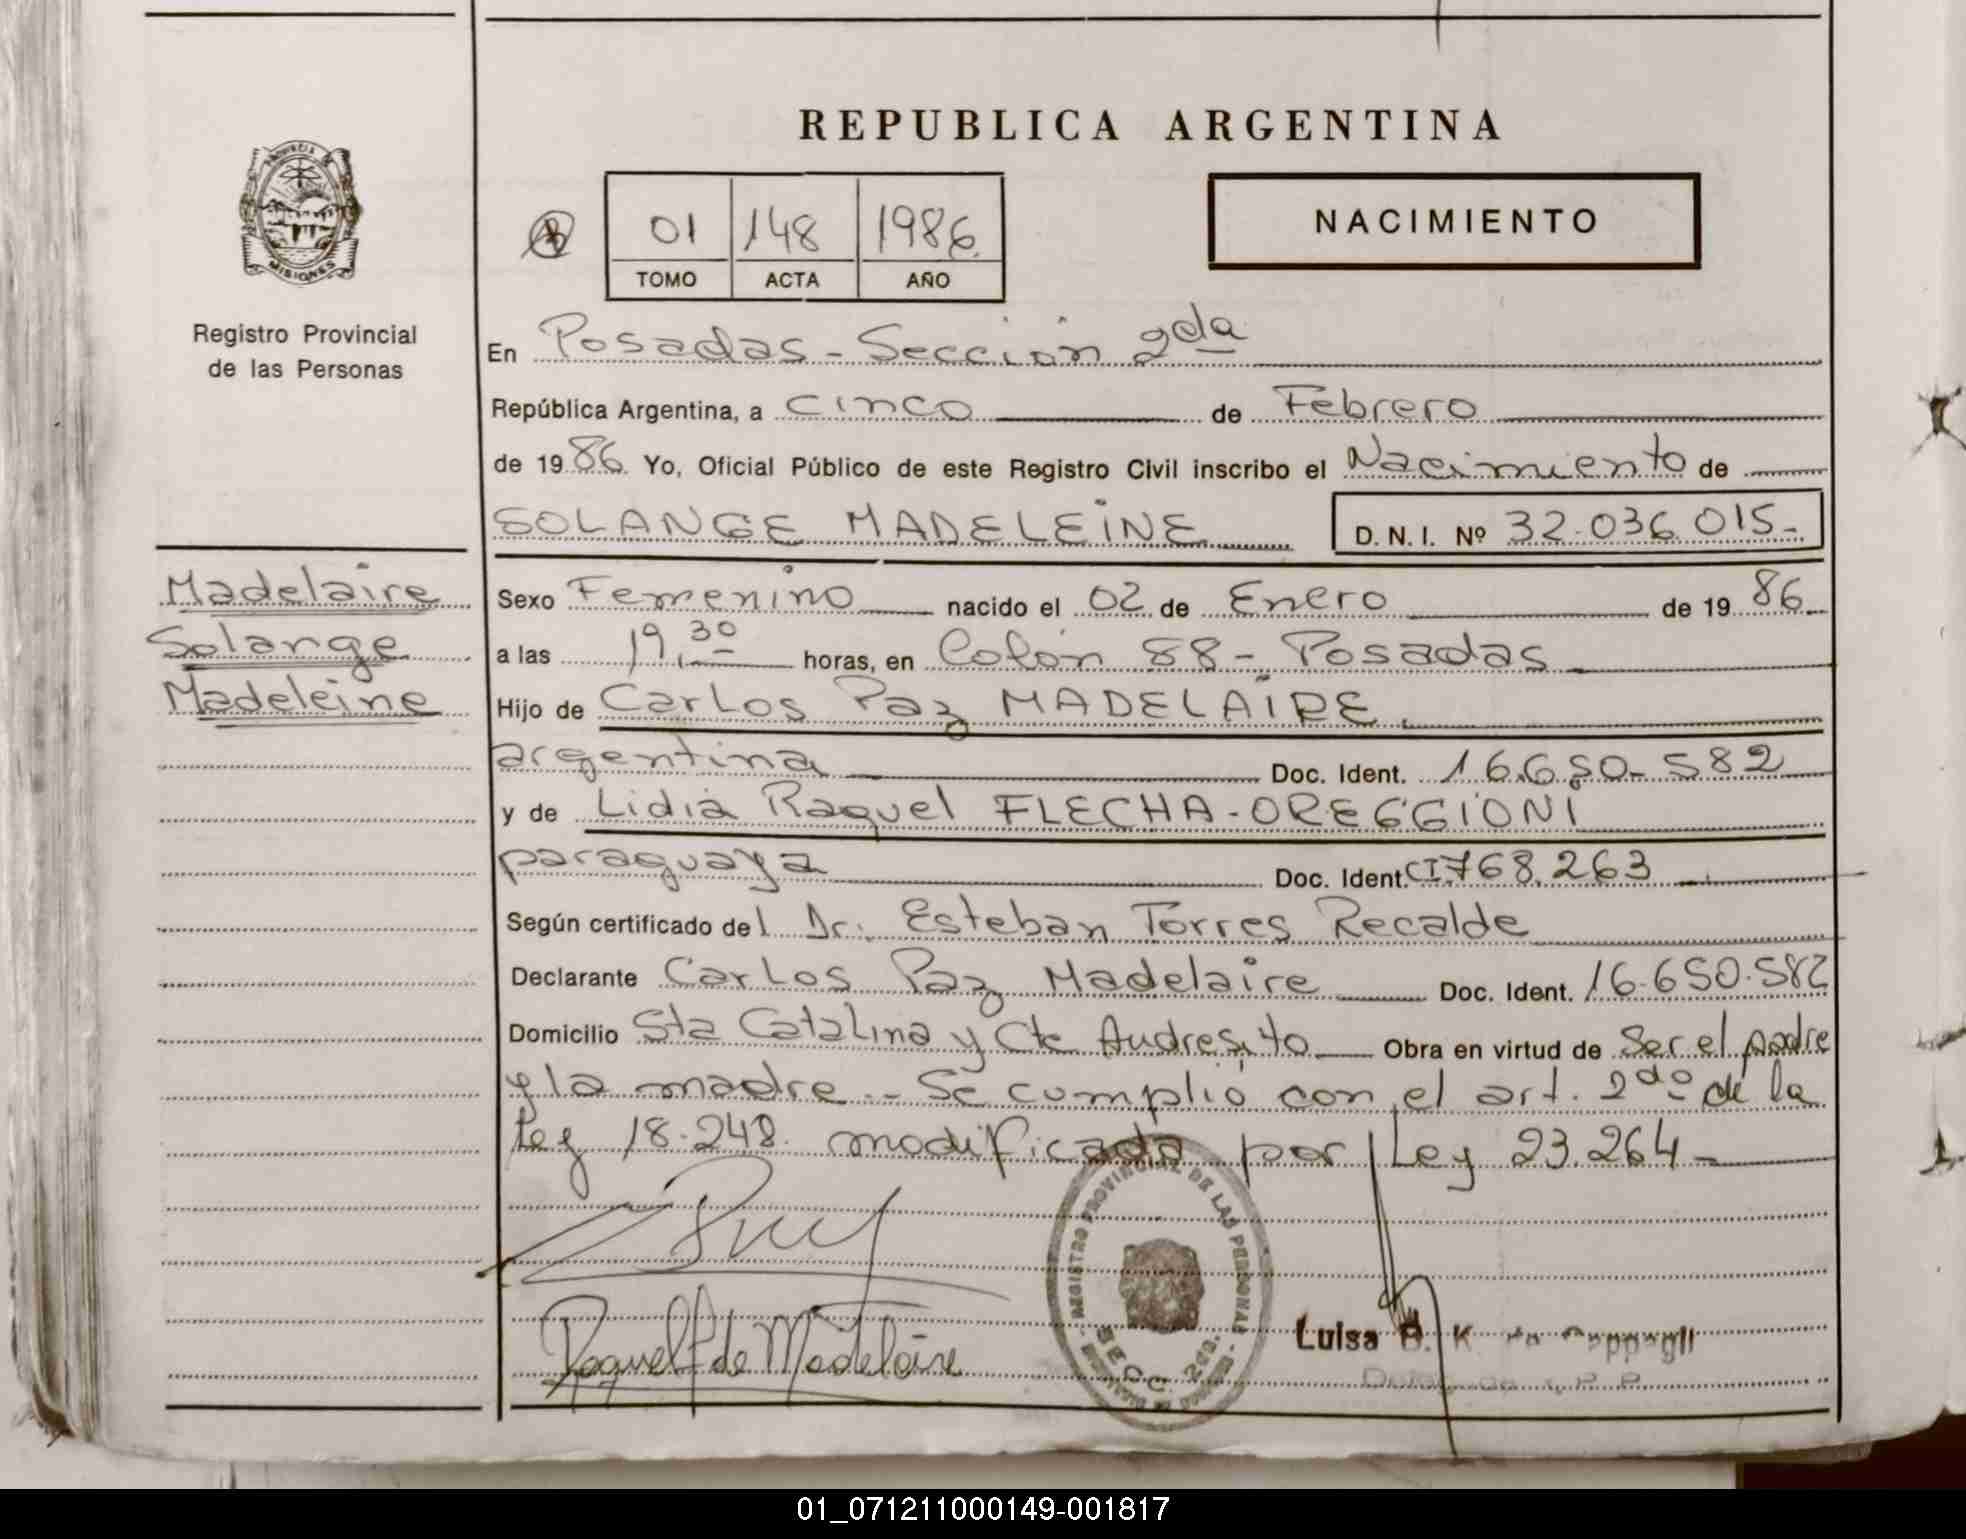 REPUBLICA ARGENTINA
PROVINCIA DE
MISIONES
Registro Provincial
de las Personas
01 148 1986
TOMO ACTA AÑO
NACIMIENTO
En Posadas - Sección 2da
República Argentina, a cinco de Febrero
de 1986 Yo, Oficial Público de este Registro Civil inscribo el Nacimiento de
SOLANGE MADELEINE D. N. I. Nº 32.036.015-
Madelaire
Solange
Madeleine
Sexo Femenino nacido el 02 de Enero de 1986
a las 19,30 horas, en Colón 88 - Posadas
Hijo de Carlos Paz MADELAIRE
argentina Doc. Ident. 16.650-582
y de Lidia Raquel FLECHA-OREGGIONI
paraguaya Doc. Ident. CI768.263
Según certificado del Dr. Esteban Torres Recalde
Declarante Carlos Paz Madelaire Doc. Ident. 16.650.582
Domicilio Sta Catalina y Cte Andresito Obra en virtud de Ser el padre
y la madre.- Se cumplió con el art. 2do de la
Ley 18.248 modificada por Ley 23.264-
REGISTRO PROVINCIAL DE LAS PERSONAS
SECC. 2da.
Raquel F de Madelaire
Luisa B. K.
01_071211000149-001817